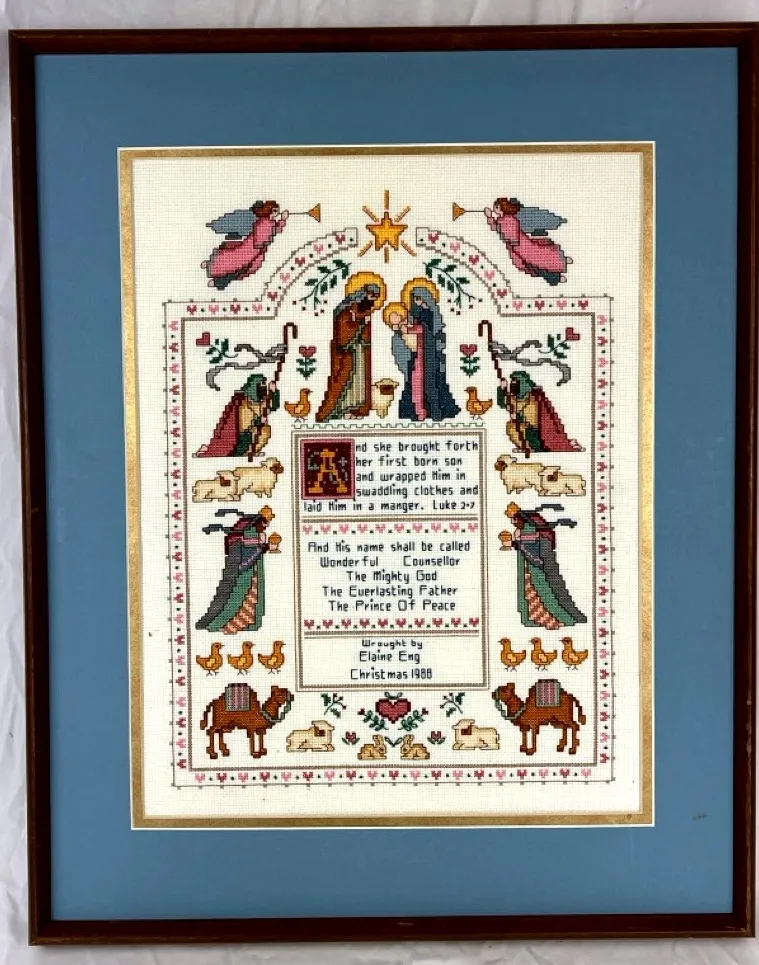 And she brought forth
her first born son
and wrapped Him in
swaddling clothes and
laid Him in a manger. Luke 2•7
And His name shall be called
Wonderful Counsellor
The Mighty God
The Everlasting Father
The Prince Of Peace
Wrought by
Elaine Eng
Christmas 1988